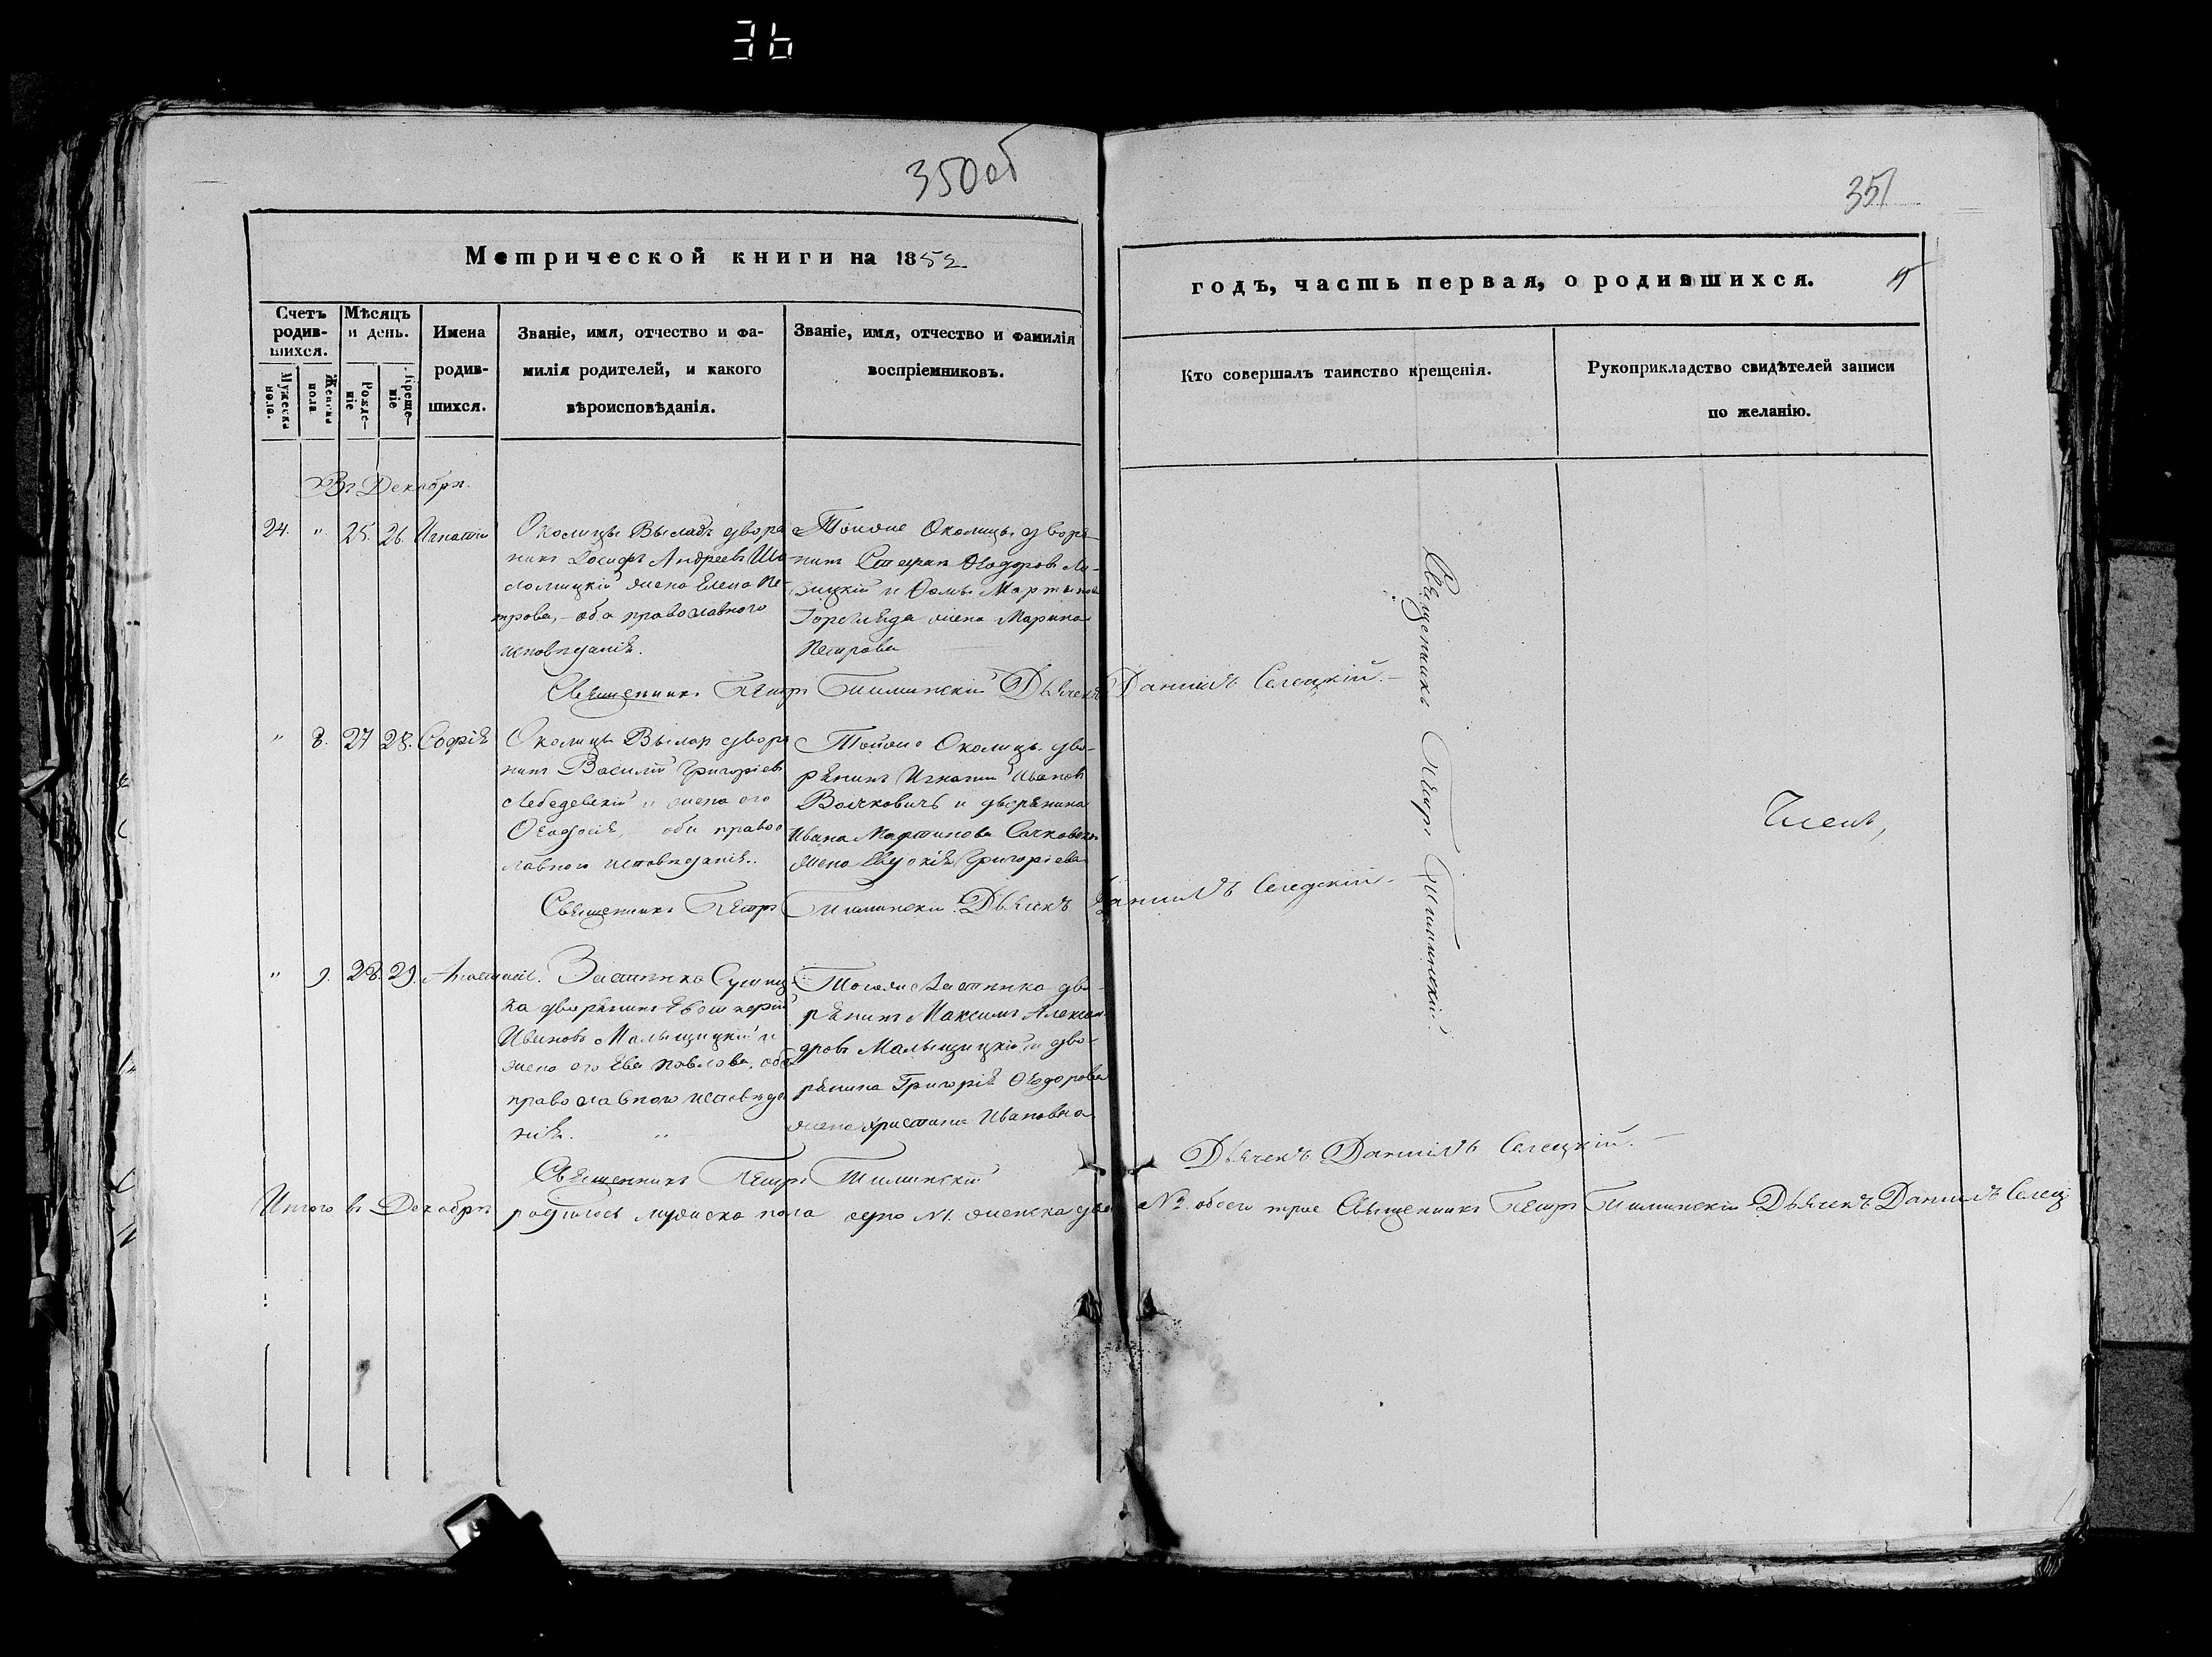 36
350об
351
Метрической книги на 1852
годъ, часть первая, о родившихся.
Счетъ родив-шихся.
Мѣсяцъ и день.
Имена родив-шихся.
Званіе, имя, отчество и фа-
милія родителей, и какого
вѣроисповѣданія.
Званіе, имя, отчество и фамилія
воспріемниковъ.
Мужеска пола.
Женска пола
Рожде-ніе
Креще-ніе
Кто совершалъ таинство крещенія.
Рукоприкладство свидѣтелей записи
по желанію.
Въ Декабрѣ.
24. " 25. 26. Игнатій
Околицы двора
нинъ Іосифъ Андреевъ
жена Елена Пе-
трова, оба православного
исповѣданія.
Тойже Околицы дворя-
нинъ Стефан Ѳеодоровъ
и Ѳомы Мартинова
жена Марина
Петрова
Священникъ Петръ Тиминскій Дьячекъ Даніилъ Селецкій.
" 8. 27 28. Софія
Околицы дворя
нинъ Василій Григоріевъ
Лебедевскій и жена его
Ѳеодосія, оба право
лавного исповѣданія.
Тойже Околицы дво-
рянинъ Игнатій Ивановъ
Волчковичъ и дворянина
Ивана Мартинова
жена Евдокія Григоріева
Священникъ Петръ Тиминскій Дьячекъ Даніилъ Селецкій
" 9. 28. 29. Анастасія.
Застѣнка
ка дворянинъ
Ивановъ Малыщицкій и
жена его Ева Павлова, оба
православного исповѣда
нія. "
Тогоже Застѣнка дво-
рянинъ Максимъ Алексан-
дровъ Малыщицкій и дво-
рянина Григорія Ѳеодорова
жена Христина Ивановна
Священникъ Петръ Тиминскій
Дьячекъ Даніилъ Селецкій.
Священникъ Петръ Тиминскій.
Итого въ Декабрѣ родилось мужеска пола одно №1. женска два №2. обоего трое Священникъ Петръ Тиминскій Дьячекъ Даніилъ Селец